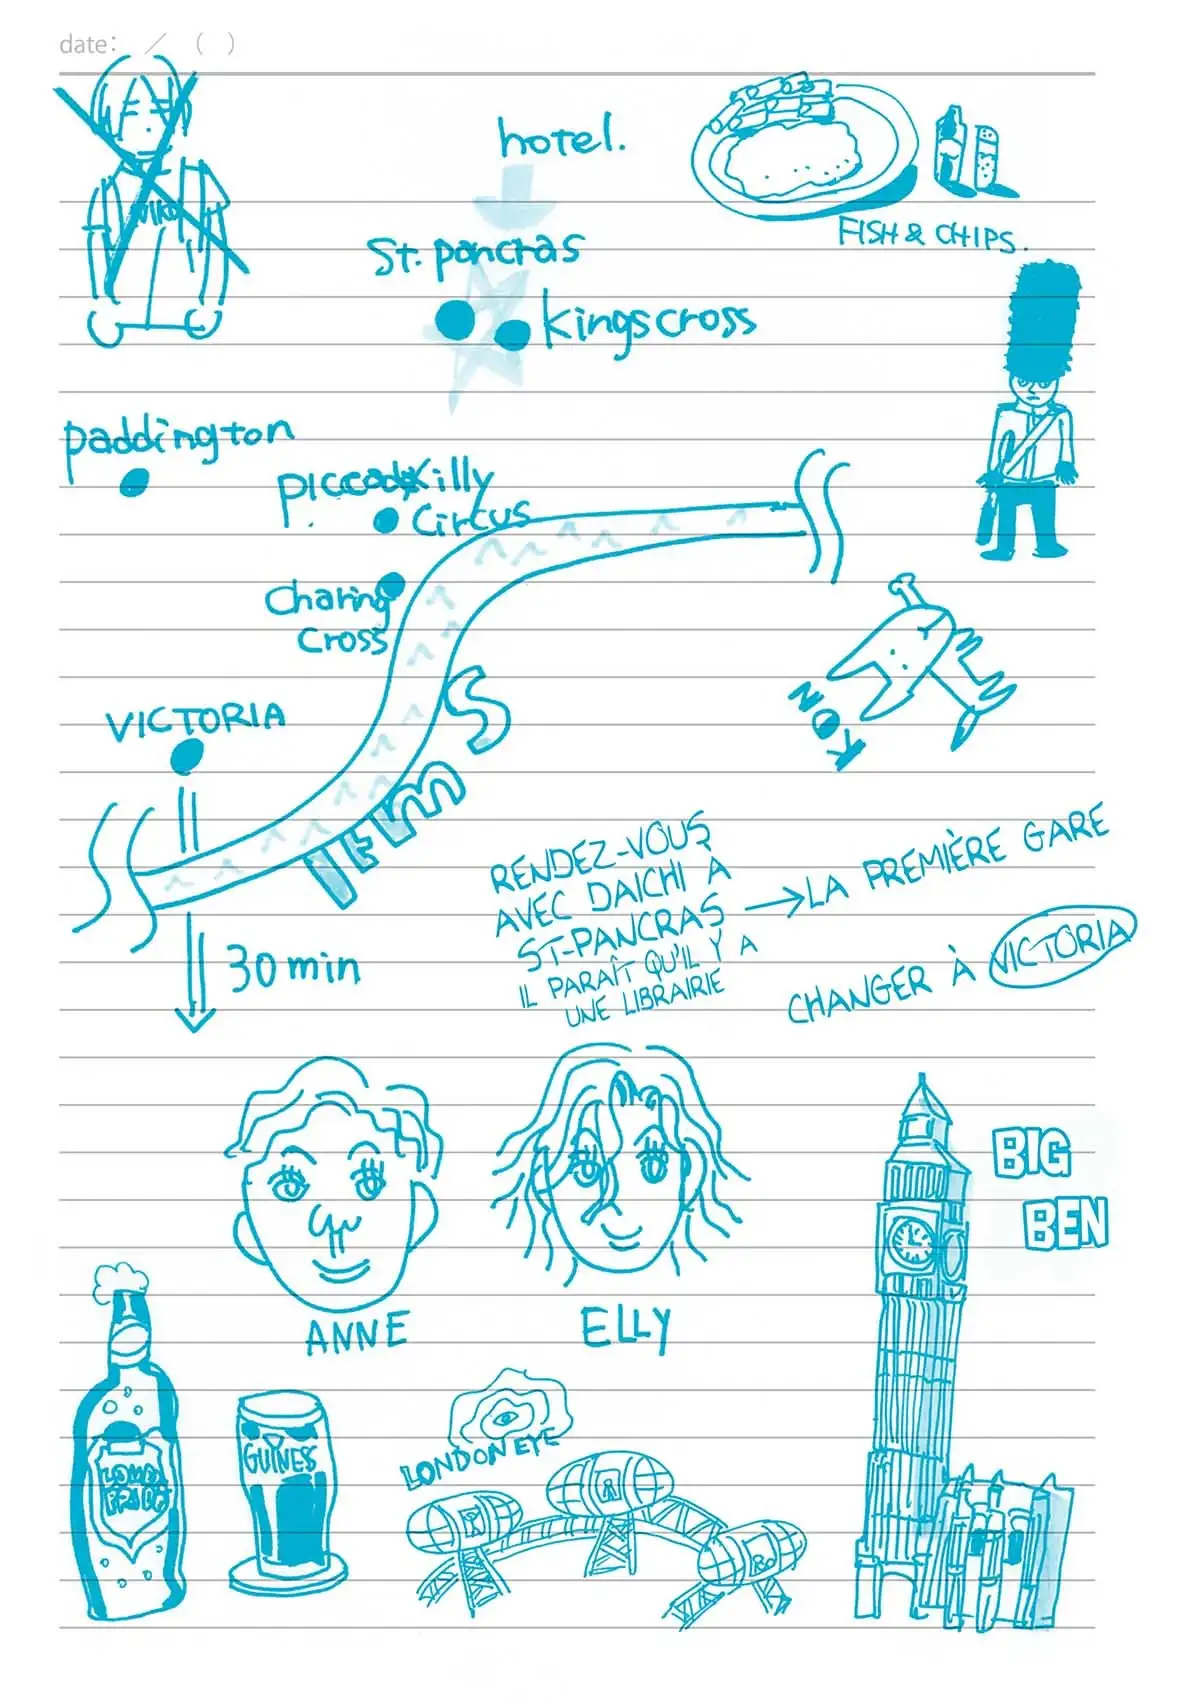 date: / ( )
hotel.
St. pancras
kingscross
FISH & CHIPS.
paddington
piccadilly
Circus
Charing
Cross
VICTORIA
TEMS
KON
30 min
RENDEZ-VOUS
AVEC DAICHI À
ST-PANCRAS
IL PARAÎT QU'IL Y A
UNE LIBRAIRIE
→ LA PREMIÈRE GARE
CHANGER À VICTORIA
ANNE
ELLY
BIG
BEN
LONDON
PRIDE
GUINESS
LONDON EYE